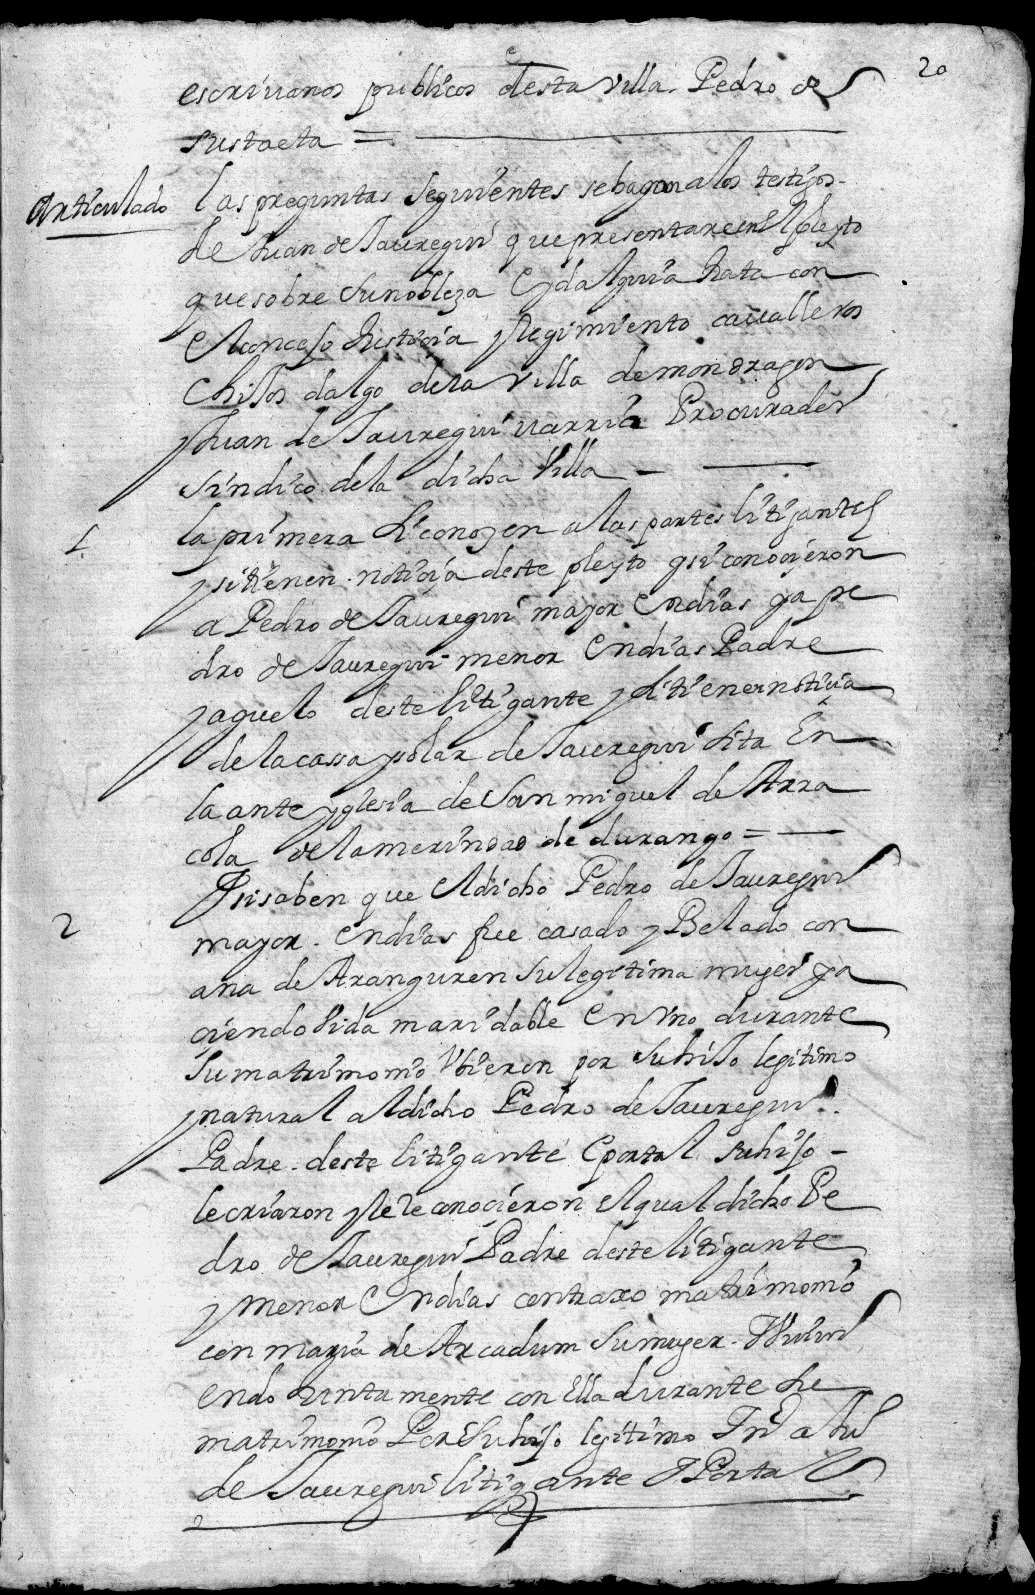 20
escriuanos publicos desta Villa Pedro de
sustaeta =
Articulado
las preguntas siguientes se hagan a los testigos
de Juan de Jauregui que presentare en el pleyto
que sobre su nobleza e ydalguia trata con
el conçejo Justiçia y Regimiento caualleros
e hijos dalgo de la Villa de mondragon
y Juan de Jaureguiuarria Procurador
sindico de la dicha Villa
1
la primera si conoçen a las partes litigantes
y si tienen notiçia deste pleyto y si conoçieron
a Pedro de Jauregui mayor en dias ya pe
dro de Jauregui menor en dias Padre
y aguelo deste litigante y si tienen notiçia
de la cassa y solar de Jauregui sita En
la ante yglesia de San miguel de Arra
cola de la merindad de durango =
2
Y si saben que el dicho Pedro de Jauregui
mayor en dias fue casado y Belado con
ana de Aranguren su legitima muger ya
çiendo Vida maridable en vno durante
su matrimonio Vbieron por su hijo legitimo
y natural al dicho Pedro de Jauregui
Padre deste litigante e por tal su hijo
le criaron y le Reconoçieron el qual dicho Pe
dro de Jauregui Padre deste litigante
y menor en dias contraxo matrimonio
con maria de Arcadum su muger Viui
endo Juntamente con Ella durante su
matrimonio Por su hijo legitimo Juº
de Jauregui litigante y Por tal